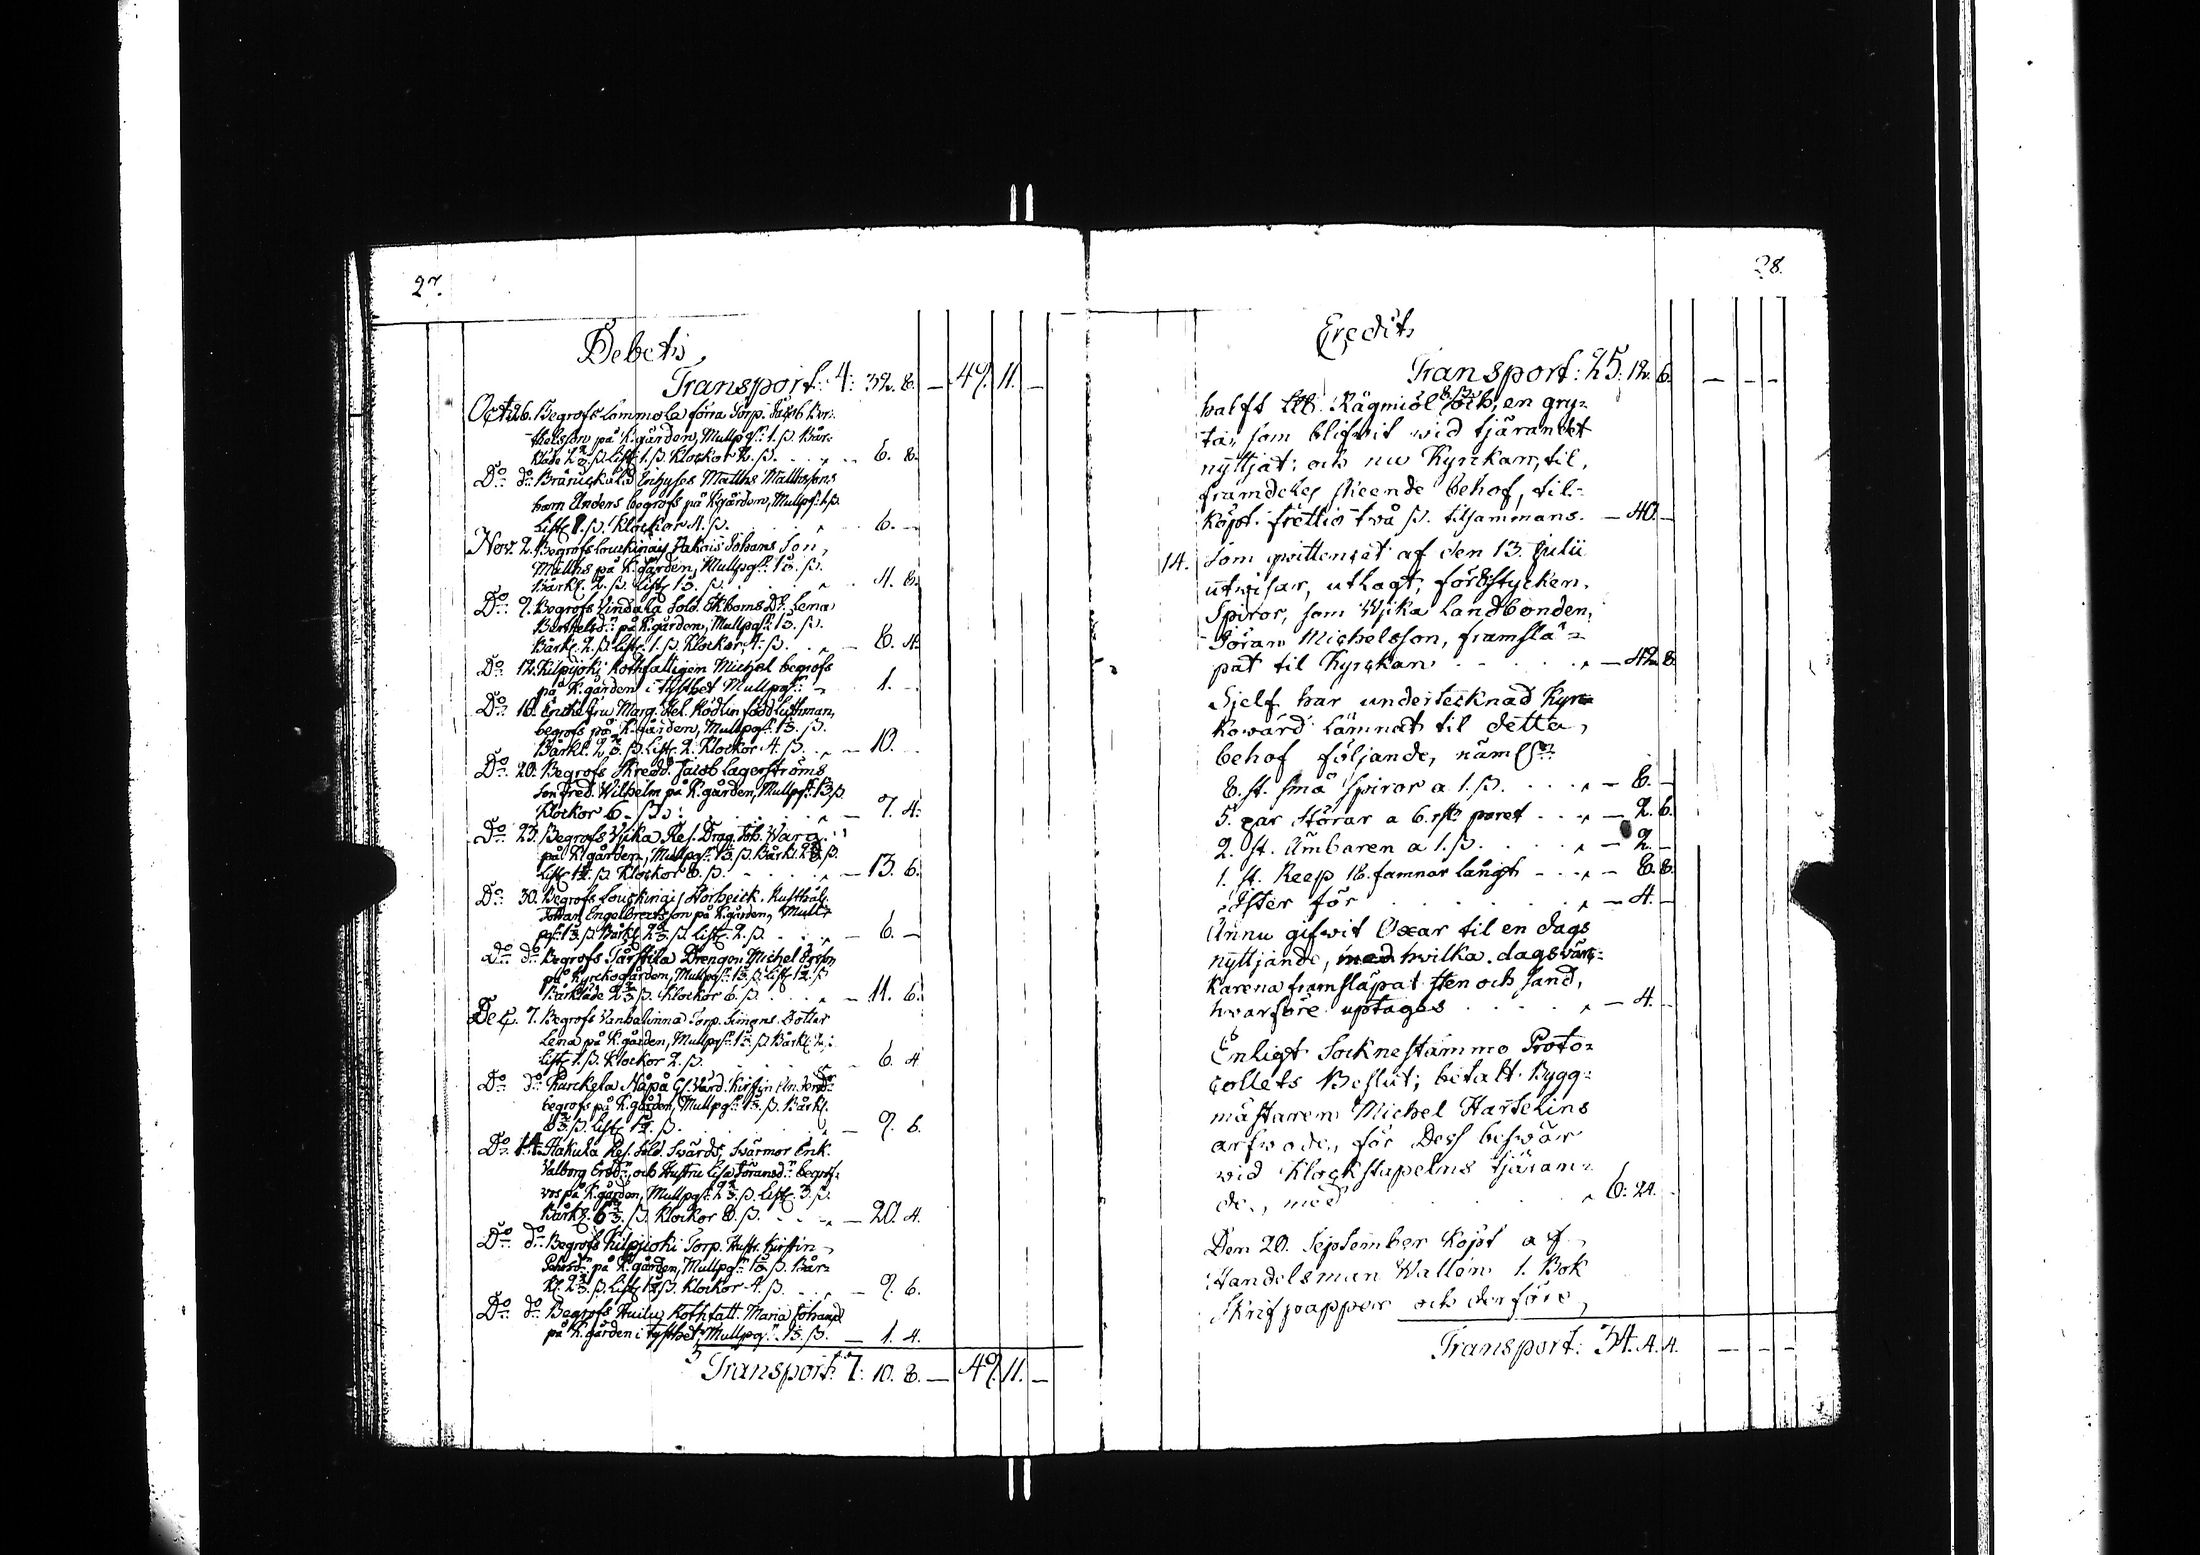 27.
Debets
Transport: 4: 32. 8. — 49. 11. —
Octob. 26. Begrofs Lammola förra Torp. Jacob Ber-
thelsson på K:gården, Mullpg:r 1. ß. Bår-
kläde 2 2/3 ß. List: 1. ß. Klockor 2. ß. — 6. 8.
D:o d:o Bränickala Enhyses Matths Matthssons
barn Anders begrofs på K:gården, Mullpg:r 1. ß.
List: 1. ß. Klockor 4. ß. 6. —
Nov. 2. Begrofs Johans Son,
Matths på K:gården, Mullpg:r 1 1/3. ß.
Bårkl: 2. ß. List: 1 1/3. ß. 4. 8.
D:o 9. Begrofs Lindala Sold. Ekboms D:r Lena
på K:gården, Mullpg:r 1 1/3. ß.
Bårkl: 2. ß. List: 1. ß. Klockor, 4. ß. — 8. 4.
D:o 12. Kilpijoki Rothfattigen Michel begrofs
på K:gården i tysthet Mullpg:r 1. —
D:o 16. Enkefru Marg. Hel. Rodlin född Luthman,
begrofs på K:gården, Mullpg:r 1 1/3. ß.
Bårkl: 2 2/3. ß. List: 2. Klockor 4. ß. — 10.
D:o 20. Begrofs Skredd. Jacob Lagerströms
Son Fred. Wilhelm på K:gården, Mullpg:r 1 1/3 ß.
Klockor 6. ß. — 7. 4.
D:o 23. Begrofs Wjka Res. Drag. Joh. Warg
på K:gården, Mullpg:r 1 1/3. ß. Bårkl. 2 2/3 ß.
List: 1 1/2. ß. Klockor 8. ß. — 13. 6.
D:o 30. Begrofs Rusthål.
Johan Engelbrectsson på K:gården, Mull-
pg:r 1 1/3. ß. Bårkl: 2 2/3. ß. List: 2. ß. — 6. —
D:o d:o Begrofs Tarstila Drengen Michel Ersson
på Kyrckogården, Mullpg:r 1 1/3. ß. List: 1 1/2. ß
Bårkläde 2 2/3 ß. Klockor 6. ß. — 11. 6.
Dec. 7. Begrofs Torp. Simons Dotter
Lena på K:gården, Mullpg:r 1 1/3. ß Bårkl: 2.
List: 1. ß. Klockor 2. ß. 6. 4
D:o d:o Kurckela Näpä Kirstin
begrofs på K:gården, Mullpg:r 1 1/3. ß. Bårkl.
List: 1 1/2. ß. — 9. 6.
D:o 14. Hakula Res. Sold. Swärds, Swärmor Enk.
Valborg Ersd:r, och Hustru Lisa Göransd:r begrof-
vos på K:gården, Mullpg:r 2 2/3. ß. List: 3. ß.
Bårkl. 6 2/3. ß. Klockor 8. ß. — 20. 4.
D:o d:o Begrofs Kilpijoki Torp. Hustr. Kirstin
på K:gården, Mullpg:r 1 1/3. ß. Bår-
kl. 2 2/3. ß. List: 1 1/2 ß. Klockor 4. ß. — 9. 6.
D:o d:o Begrofs Huilu Rothfatt. Maria Johansd
på K:gården i tysthet, Mullpg:r 1 1/3. ß. — 1. 4.
Transport: 7: 10. 8. — 49. 11. —
28.
Credit
Transport: 25: 12. 6. — — —
halft Rågmiöl och, en gry-
ta, som blifwit wid tjärandet
nyttjat; och nu Kyrckan, til,
framdeles skeende behof, til-
köpt. frettio två ß. tilsammans. — 40. —
14. Som qvittencet af den 13. Julii
utwisar, utlagt, för 8 stycken,
Spiror, som Wjka Landbonden,
Göran Michelsson, framslä-
pat til Kyrckan. — 42. 8.
Sjelf har undertecknad Kyr-
kowärd lämnat til detta,
behof följande, näml:n
8. st. små spiror a 1. ß. — 8. —
5. par Störar a 6. rst: paret — 2. 6.
2. st. Ämbaren a 1. ß. — 2. —
1. st. Reep 18. famnar långt — 8. 8.
Ister för — 4. —
Ännu gifwit Oxar til en dags
nyttjande, med hwilka dagsvär-
karena framsläpat sten och sand,
hwarföre uptages — 4. —
Enligt Socknestämmo Proto-
collets Beslut; betalt Bygg-
mästaren Michel Hartelins
arfwode, för Dess beswär
wid Klockstapelns tjäran-
de, med 6: 24.
Den 20. September köpt af
Handelsman Wallen 1. Bok
Skrifpapper och derföre,
Transport: 34. 4. 4. — — —